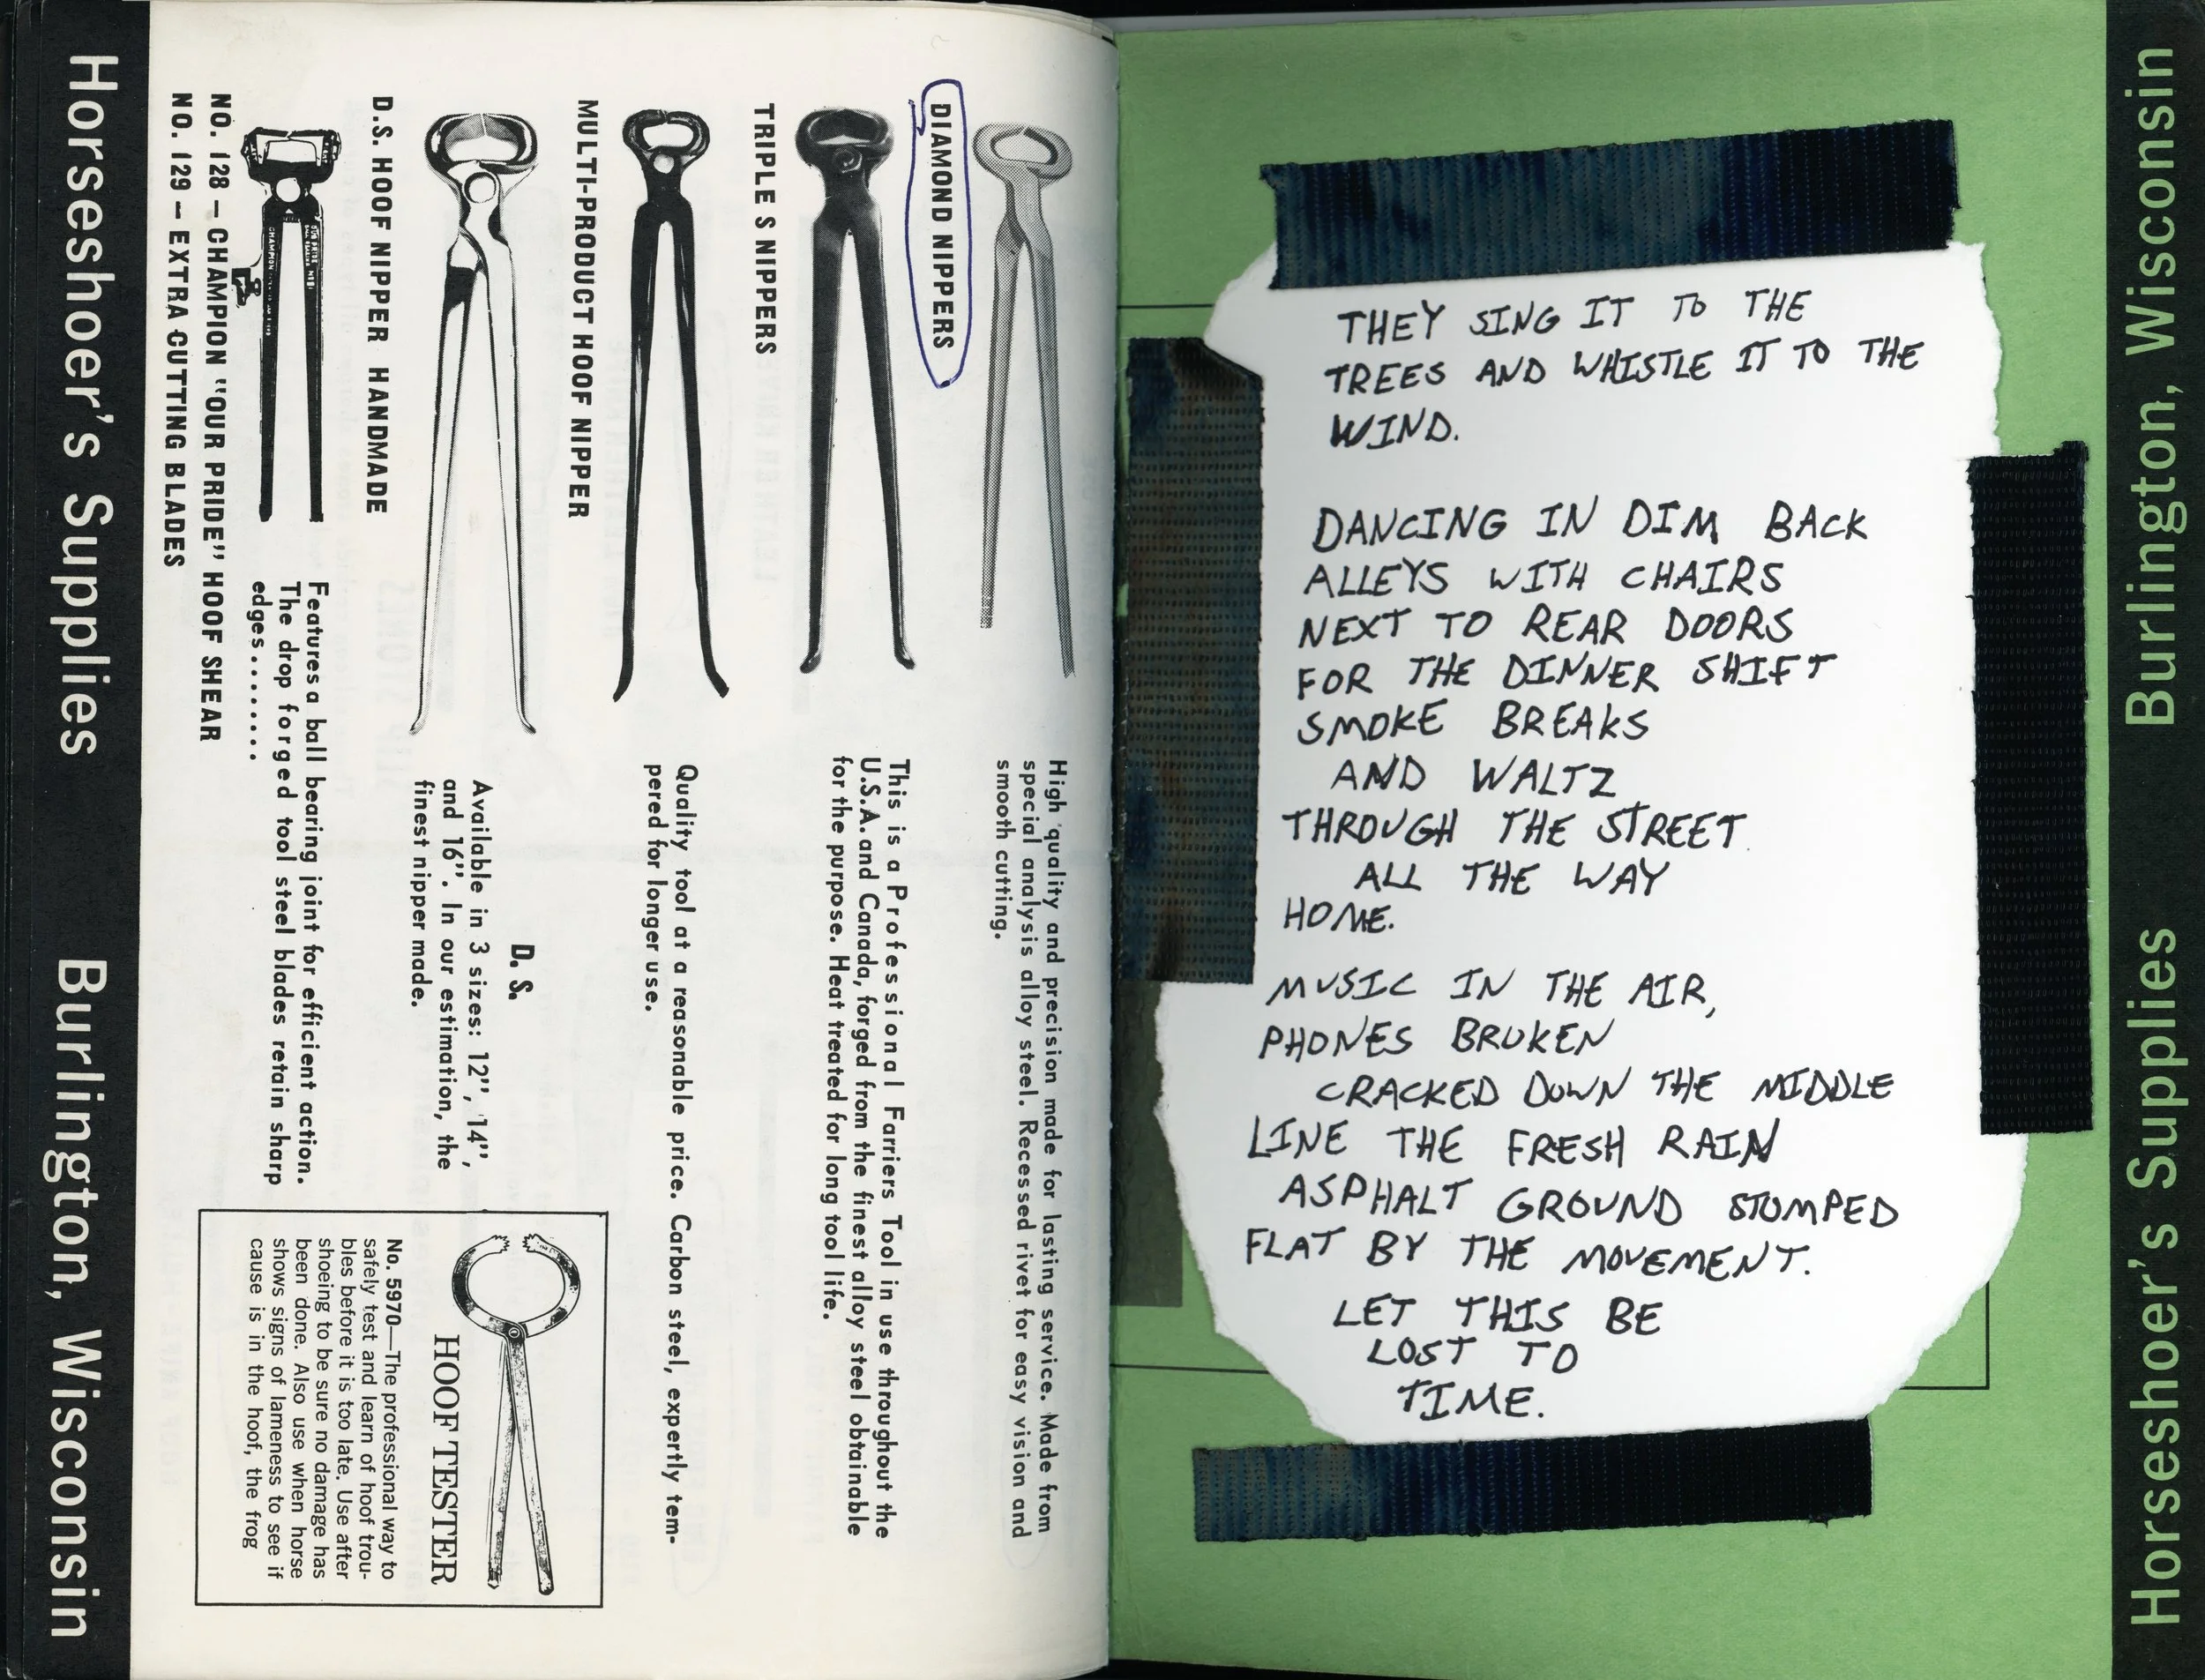 Horseshoer's Supplies Burlington, Wisconsin
DIAMOND NIPPERS
High quality and precision made for lasting service. Made from
special analysis alloy steel. Recessed rivet for easy vision and
smooth cutting.
TRIPLE S NIPPERS
This is a Professional Farriers Tool in use throughout the
U.S.A. and Canada, forged from the finest alloy steel obtainable
for the purpose. Heat treated for long tool life.
MULTI-PRODUCT HOOF NIPPER
Quality tool at a reasonable price. Carbon steel, expertly tem-
pered for longer use.
D.S. HOOF NIPPER HANDMADE
D. S.
Available in 3 sizes: 12", 14",
and 16". In our estimation, the
finest nipper made.
NO. 128 — CHAMPION "OUR PRIDE" HOOF SHEAR
NO. 129 — EXTRA CUTTING BLADES
Features a ball bearing joint for efficient action.
The drop forged tool steel blades retain sharp
edges........
HOOF TESTER
No. 5970—The professional way to
safely test and learn of hoof trou-
bles before it is too late. Use after
shoeing to be sure no damage has
been done. Also use when horse
shows signs of lameness to see if
cause is in the hoof, the frog
THEY SING IT TO THE
TREES AND WHISTLE IT TO THE
WIND.
DANCING IN DIM BACK
ALLEYS WITH CHAIRS
NEXT TO REAR DOORS
FOR THE DINNER SHIFT
SMOKE BREAKS
AND WALTZ
THROUGH THE STREET
ALL THE WAY
HOME.
MUSIC IN THE AIR,
PHONES BROKEN
CRACKED DOWN THE MIDDLE
LINE THE FRESH RAIN
ASPHALT GROUND STOMPED
FLAT BY THE MOVEMENT.
LET THIS BE
LOST TO
TIME.
Horseshoer's Supplies Burlington, Wisconsin